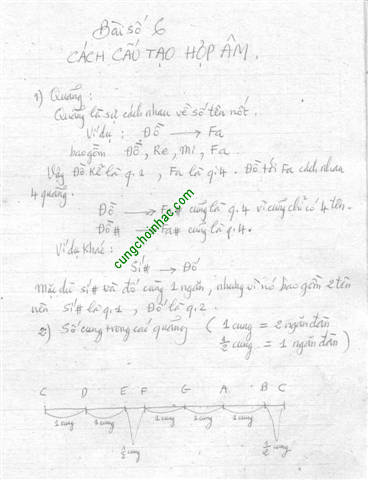 Bài số 6
CÁCH CẤU TẠO HỢP ÂM.
1) Quãng :
Quãng là sự cách nhau về số tên nốt.
Ví dụ : Đồ → Fa
bao gồm Đồ, Re, Mi, Fa
Vậy Đồ kể là q.1 , Fa là q.4 . Đồ tới Fa cách nhau
4 quãng.
Đồ → Fa# cũng là q.4 vì cũng chỉ có 4 tên.
Đồ# → Fa# cũng là q.4.
Ví dụ Khác :
Si# → Đô
Mặc dù si# và đô cùng 1 ngăn, nhưng vì nó bao gồm 2 tên
nên Si# là q.1 , Đô là q.2.
2) Số cung trong các quãng ( 1 cung = 2 ngăn đàn
1/2 cung = 1 ngăn đàn )
C D E F G A B C
1 cung 1 cung 1 cung 1 cung 1 cung
1/2 cung 1/2 cung
cungchoinhac.com